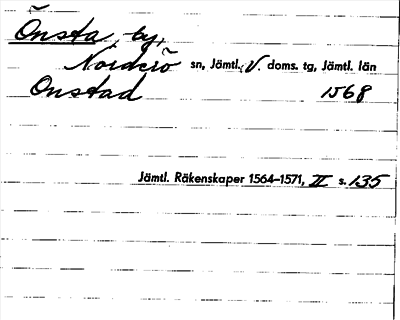 Önsta, by,
Norderö sn, Jämtl. V. doms. tg, Jämtl. län
Onstad 1568
Jämtl. Räkenskaper 1564–1571, II s. 135